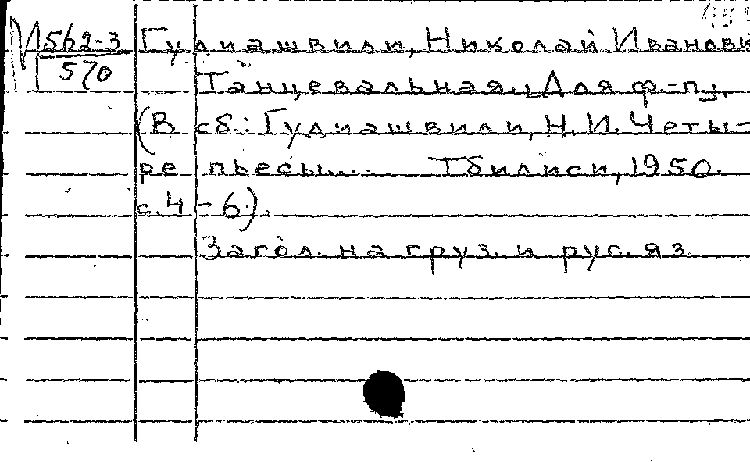 М 562-3 Гулиашвили, Николай Иванови
570 Танцевальная. Для ф-п.
(В сб.: Гулиашвили, Н.И. Четы-
ре пьесы... Тбилиси, 1950.
с. 4-6).
Загол. на груз. и рус. яз.